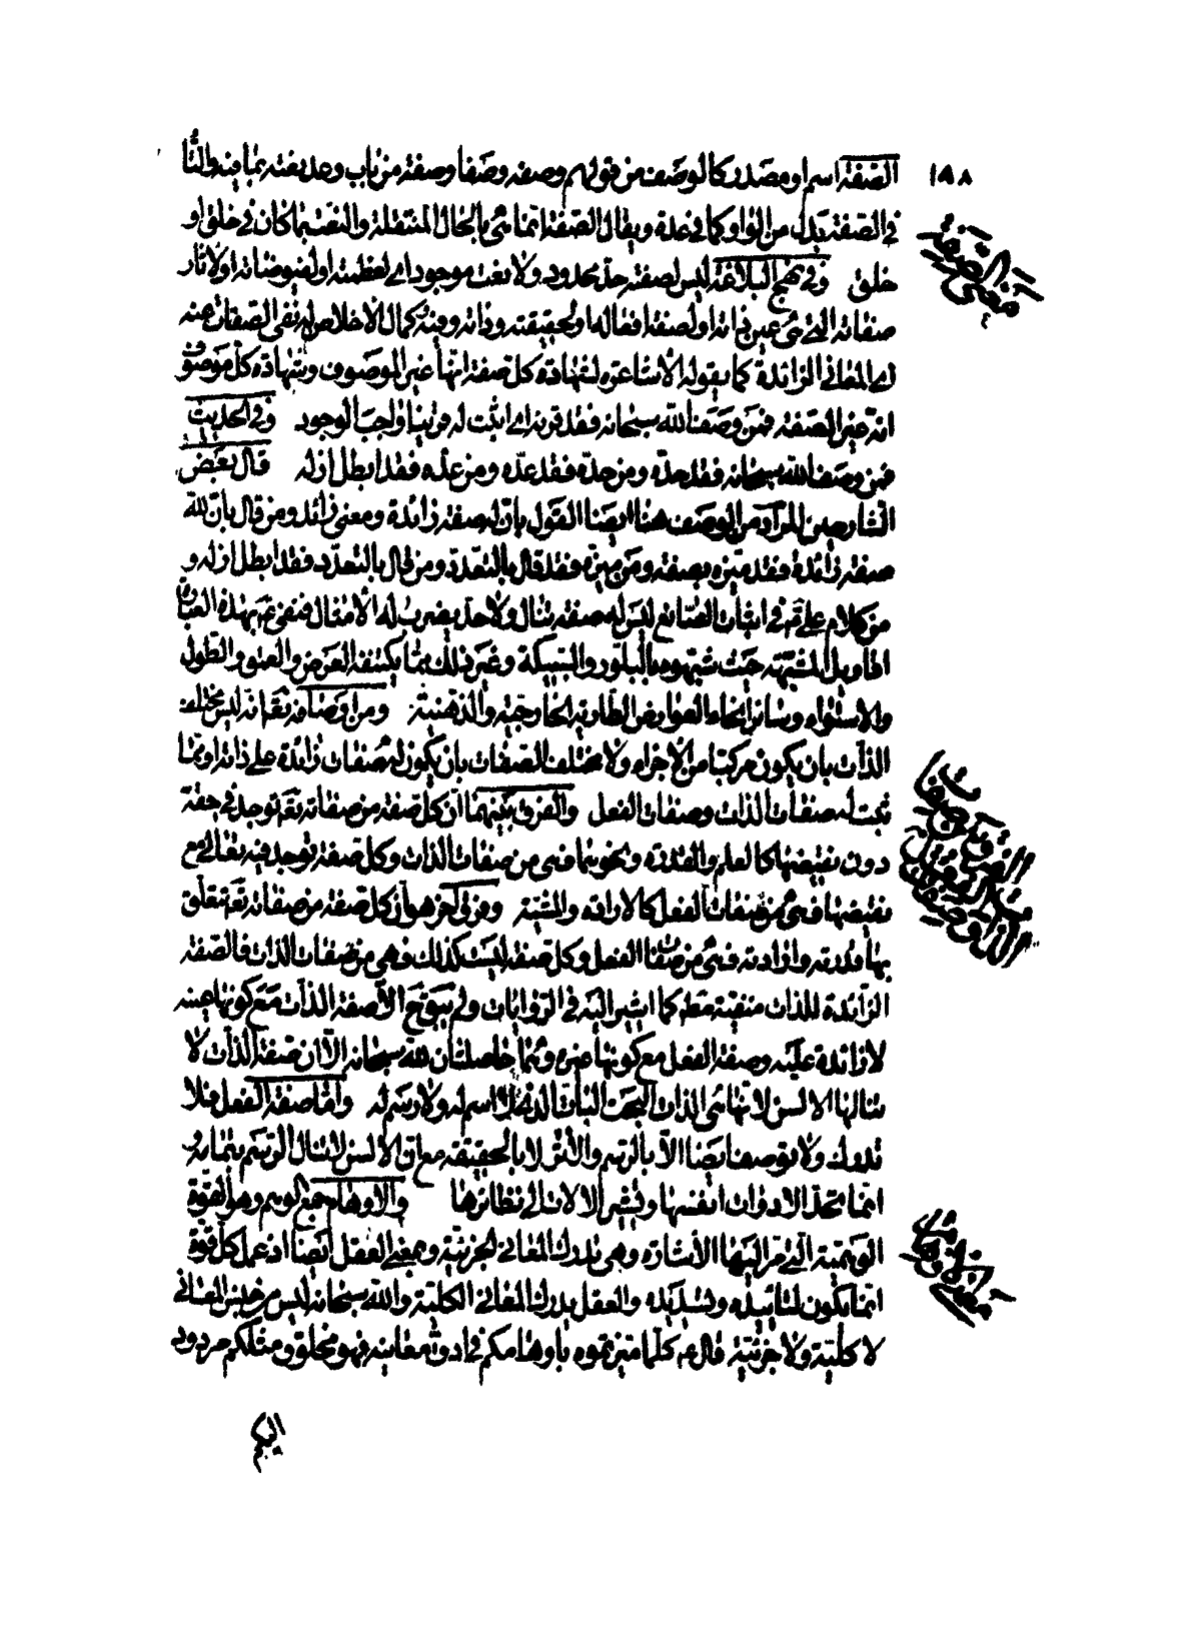 ١٥٨
الصّفة اسم او مصدر كالوصف من قولهم وصفه وصفا وصفة من باب وعد نعته بما فيه والتّا
معنى الصّفة
في الصّفة بدل من الواو كما في عدة ويقال الصّفة انّما هي بالحال المنتقلة والنعت بما كان في خلق او
خلق وفي نهج البلاغة ليس لصفته حدّ محدود ولا نعت موجود اي لعظمته او لفيوضاته او لاثار
صفاته التي هي عين ذاته او لصفة افعاله او لحقيقته وذاته وفيه كمال الاخلاص له نفى الصّفات عنه
اي المعاني الزائدة كما يقوله الأشاعرة لشهادة كل صفة انّها غير الموصوف وشهادة كل موصوف
انّه غير الصّفة فمن وصف الله سبحانه فقد قرنه اي اثبت له قرينا واجب الوجود وفي الحديث
فمن وصف الله سبحانه فقد حدّه ومن حدّه فقد عدّه ومن عدّه فقد ابطل ازله قال بعض
الشارحين المراد من الوصف هنا ايضا القول بانّ له صفة زائدة ومعنى زائد ومن قال بانّ لله
صفة زائدة فقد ميّزه بصفة ومن ميّزه فقد قال بالتعدّد ومن قال بالتعدّد فقد ابطل ازله و
من كلام علي ع في اثبات الصّانع ليس له صفة تنال ولا حدّ يضرب له الأمثال فنفى ع بهذه العبارة
اقاويل المشبّهة حيث شبّهوه بالبلّور والسّبيكة وغير ذلك ممّا يكتنفه العرض والعمق والطول
والاستواء وسائر انحاء العوارض الطارية الخارجيّة والذهنيّة ومن اوصافه تع انّه ليس بمختلف
الذات بان يكون مركبا من الأجزاء ولا مختلف الصّفات بان يكون له صفات زائدة على ذاته وانما
الفرق بين صفات الذات وصفات الفعل
ثبت له صفات الذات وصفات الفعل والفرق بينهما انّ كل صفة من صفاته تع توجد في حقه
دون نقيضها كالعلم والقدرة ونحوهما فهى من صفات الذات وكل صفة توجد فيه تعالى مع
نقيضها فهى من صفات الفعل كالارادة والمشيّة وفرق آخر هو ان كل صفة من صفاته تع تتعلّق
بها قدرته وارادته فهى من صفات الفعل وكل صفة ليست كذلك فهى من صفات الذات فالصّفة
الزّائدة للذات منفيّة مطلقا كما اشير اليه في الروايات ولم يبق ح الّا صفة الذات مع كونها عينه
لا زائدة عليه وصفة الفعل مع كونها غيره وهما حاصلتان لله سبحانه الّا ان صفة الذات لا
تنالها الالسن لانّها هى الذات البحت البات الذي لا اسم له ولا رسم له وامّا صفة الفعل فلا
تدرك ولا توصف ايضا الّا بالرسم والأثر لا بالحقيقة مع انّ الالسن لا تنال الرسم بتمامه و
انّما تحدّ الادوات انفسها وتشير الآلات الى نظائرها والاوهام جمع الوهم وهو القوّة
معنى الاوهام
الوهميّة التي مرّ اليها الأشارة وهى تدرك المعاني الجزئيّة وبمعنى العقل ايضا اذ عمل كل قوّة
انّما يكون لتاييده وتسديده والعقل يدرك المعاني الكليّة والله سبحانه ليس من جنس المعاني
لا كليّة ولا جزئيّة قال ع كلّما ميّزتموه باوهامكم في ادقّ معانيه فهو مخلوق مثلكم مردود
اليكم